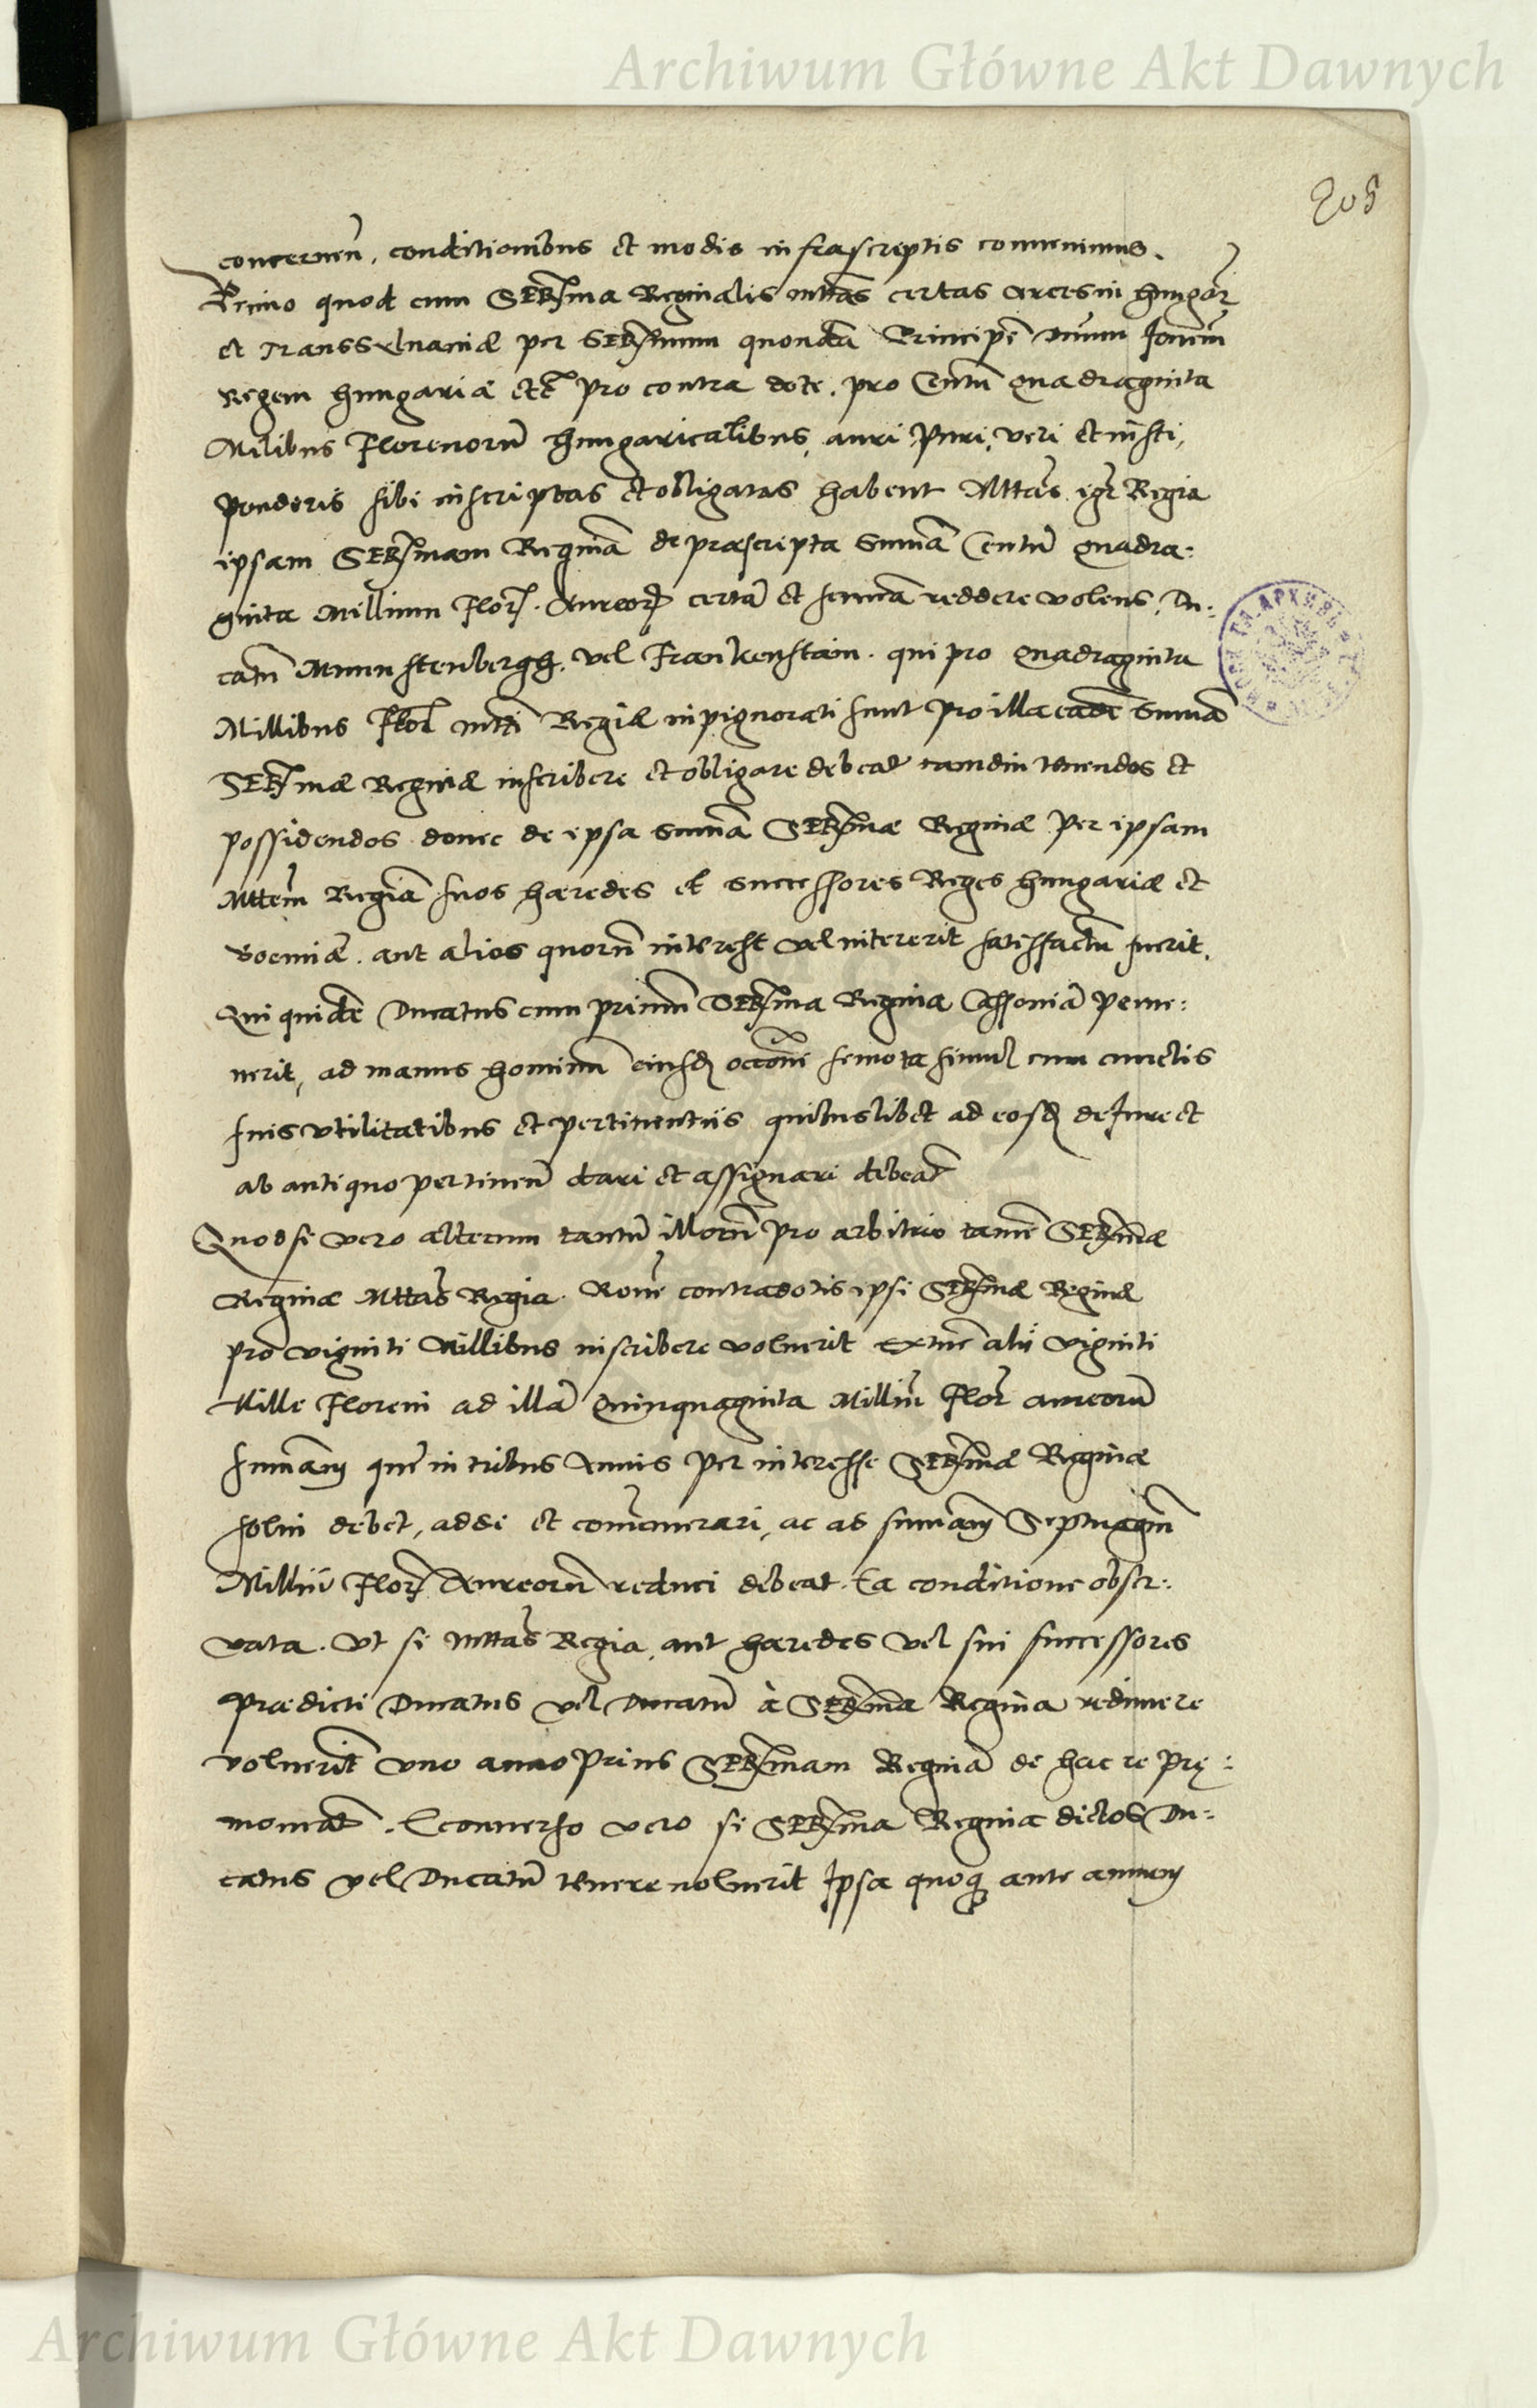 Archiwum Główne Akt Dawnych
205
concerneñ, conditionibus et modis infrascriptis convenimus.
Primo quod cum SERma Reginalis Mttas certas arces in Hungar
et Transsylvaniæ per SERmum quondã Principẽ Dnum Joañem
Regem Hungariæ etc pro contra dote, pro Centũ Quadraginta
Milibus Florenorũ Hungaricalibus, auri puri, veri et iusti,
ponderis sibi inscriptas et obligatas habent Mttas igr Regia
ipsam SERmam Reginã de præscripta Summã Centũ Quadra:
ginta Millium Flor. Aureor certã et securã reddere volens, Du:
catũ Munnstenbergh, vel Frankenstain. qui pro Quadraginta
Millibus Flor Mtti Regiæ inpignorati sunt pro illa eadẽ Summã
SERmæ Reginæ inscribere et obligare debeat tamdiu tenendos et
possidendos donec de ipsa summã SERmæ Reginæ per ipsam
Mttem Regiã suos hæredes et successores Reges Hungariæ et
Boemiæ, aut alios quorũ interest vel intererit satisfactũ fuerit.
Qui quidẽ Ducatus cum primũ SERma Regina Cassoviã perve:
nerit, ad manus hominũ eiusd occõne semota simul cum cunctis
suis utilitatibus et pertinentiis quibuslibet ad eosd de Jure et
ab antiquo pertineñ dari et assignari debeat
Quod si vero alterum tantũ illorũ pro arbitrio tamẽ SERmæ
Reginæ Mttas Regia. Rone contradotis ipsi SERmæ Reginæ
pro viginti Millibus inscribere voluerit extunc alii viginti
Mille Floreni ad illã Quinquaginta Milliũ Flor aureorũ
summam que in tribus Annis per interesse SERmæ Reginæ
solui debet, addi et connumerari, ac ad summam Septuagin
Milliũ Flor Aureorũ reduci debeat. Ea conditione obser:
vata. Ut si Mttas Regia, aut hæredes vel sui successores
Prædicti Ducatus vel Ducatũ à SERma Regina redimere
voluerit uno anno prius SERmam Reginã de hac re præ:
moneat. Econuerso vero si SERma Regina dictos Du:
catus vel Ducatũ tenere noluerit Ipsa quoq ante annum
Archiwum Główne Akt Dawnych